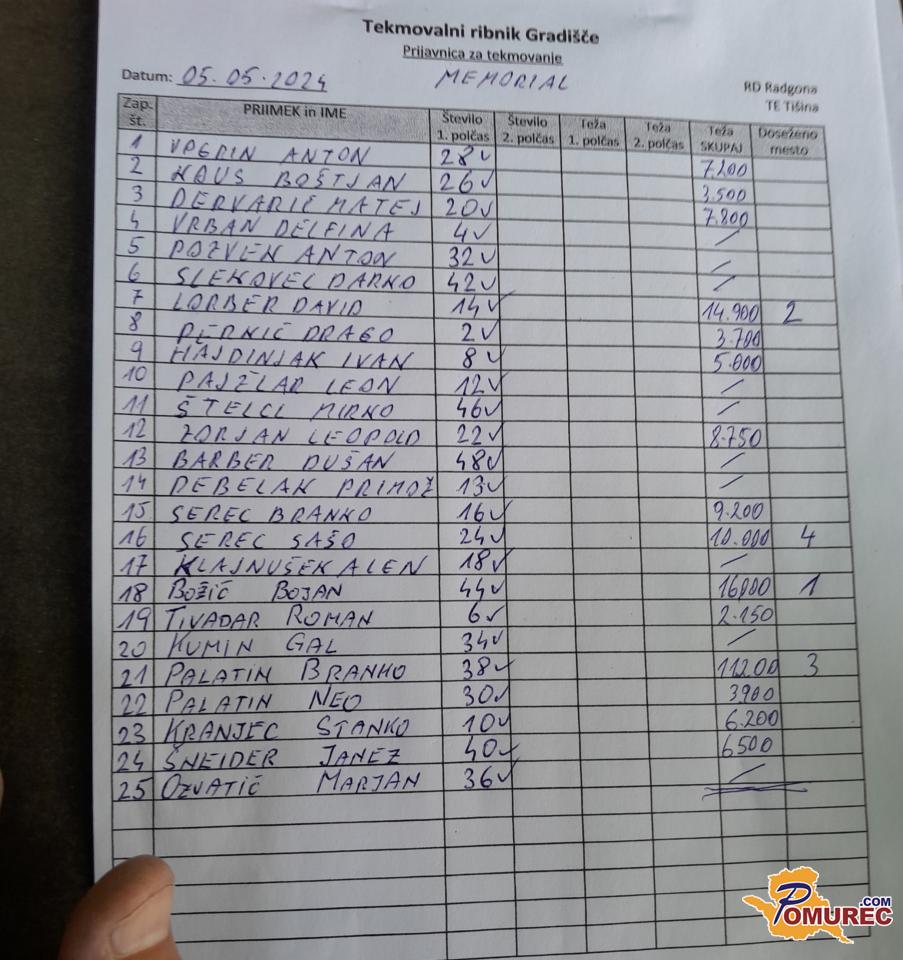 Tekmovalni ribnik Gradišče
Prijavnica za tekmovanje
Datum: 05.05.2024 MEMORIAL
RD Radgona
TE Tišina
Zap. št. PRIIMEK in IME Število 1. polčas Število 2. polčas Teža 1. polčas Teža 2. polčas Teža SKUPAJ Doseženo mesto
1 ANTON 28 7.200
2 KOUS BOŠTJAN 26 3.500
3 DERVARIČ MATEJ 20 7.800
4 VRBAN DELFINA 4 /
5 POZVEK ANTON 32 /
6 SLEKOVEC DARKO 42 /
7 LORBER DAVID 14 14.900 2
8 PERNIČ DRAGO 2 3.700
9 HAJDINJAK IVAN 8 5.000
10 PAJŽLAR LEON 12 /
11 ŠTELCL MIRKO 46 /
12 ZORJAN LEOPOLD 22 8.750
13 BARBER DUŠAN 48 /
14 DEBELAK PRIMOŽ 13 /
15 SEREC BRANKO 16 9.200
16 SEREC SAŠO 24 10.000 4
17 KLAJNUŠEK ALEN 18 /
18 BOŽIČ BOJAN 44 1
19 TIVADAR ROMAN 6 2.150
20 KUMIN GAL 34 /
21 PALATIN BRANKO 38 11200 3
22 PALATIN NEO 30 3900
23 KRANJEC STANKO 10 6.200
24 ŠNEIDER JANEZ 40 6500
25 OZVATIČ MARJAN 36 /
POMUREC.COM